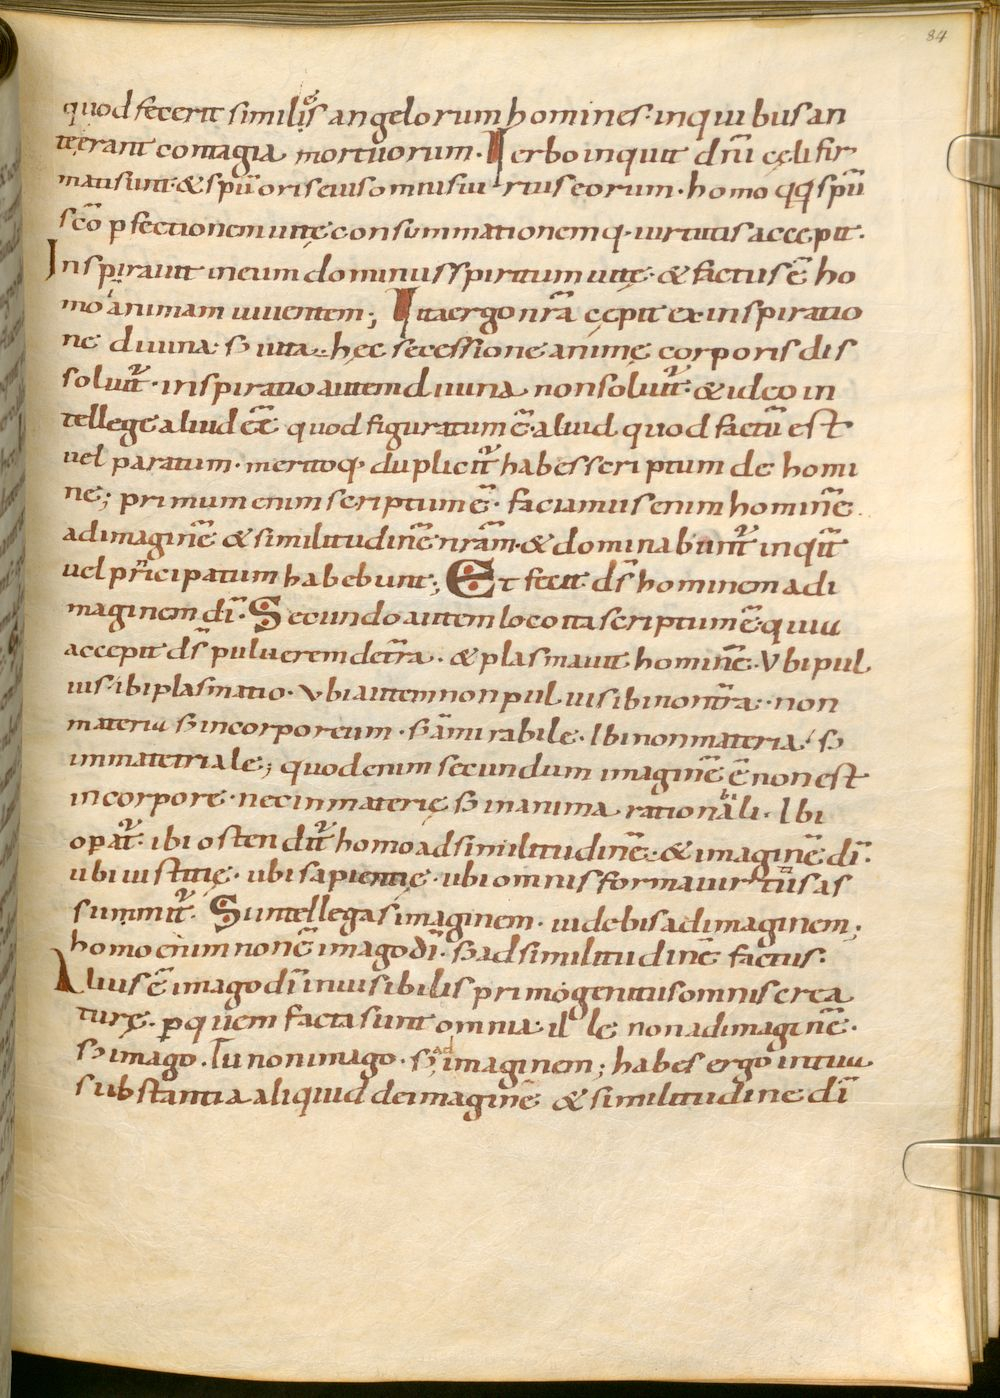 84
quod fecerit similes angelorum homines· in quibus an
te erant contagia mortuorum. Verbo inquit dn̄i cęli fir
mati sunt· & spū oris eius omnis uirtus eorum· homo q̨q̨ spū
scō pfectionem uitę consummationemq· uirtutis accepit.
Inspirauit in eum dominus spiritum uitę· & factus ē ho
mo in animam uiuentem; Ita ergo nr̄a cępit ex inspiratio
ne diuina· s; uita hęc secessione animę corporis dis
soluit᷑· inspiratio autem diuina non soluit᷑· & ideo in
tellege aliud eē quod figuratum ē· aliud quod factū est
uel paratum· meritoq· duplicit᷑ habes scriptum de homi
ne; primum enim scriptum ē· faciamus enim hominē
ad imaginē & similitudinē nrām· & dominabunt᷑ inquit
uel principatum habebunt; Et fecit ds̄ hominem ad i
maginem dī· Secundo autem loco ita scriptum ē· quia
accepit ds̄ puluerem de tr̄ra· & plasmauit hominē· Vbi pul
uis· ibi plasmatio· Vbi autem non puluis ibi non tr̄ra· non
materia s; incorporeum· s; āmirabile· Ibi non materia· s;
immatetriale; quod enim secundum imaginē ē non est
in corpore· nec in materię s; in anima rationabili· Ibi
opat᷑· ibi ostendit᷑ homo ad similitudinē· & imaginē dī·
ubi iustitię· ubi sapientię· ubi omnis forma uirtutis as
summit᷑· Si intellegas imaginem· uidebis ad imaginem;
homo enim non ē imago dī· s; ad similitudinē factus·
Alius ē imago dī inuisibilis primogenitus omnis crea
turę· p quem facta sunt omnia· ille non ad imaginē·
s; imago. Tu non imago· s; ad imaginem; habes ergo in tua
substantia aliquid de imaginē & similitudine dī